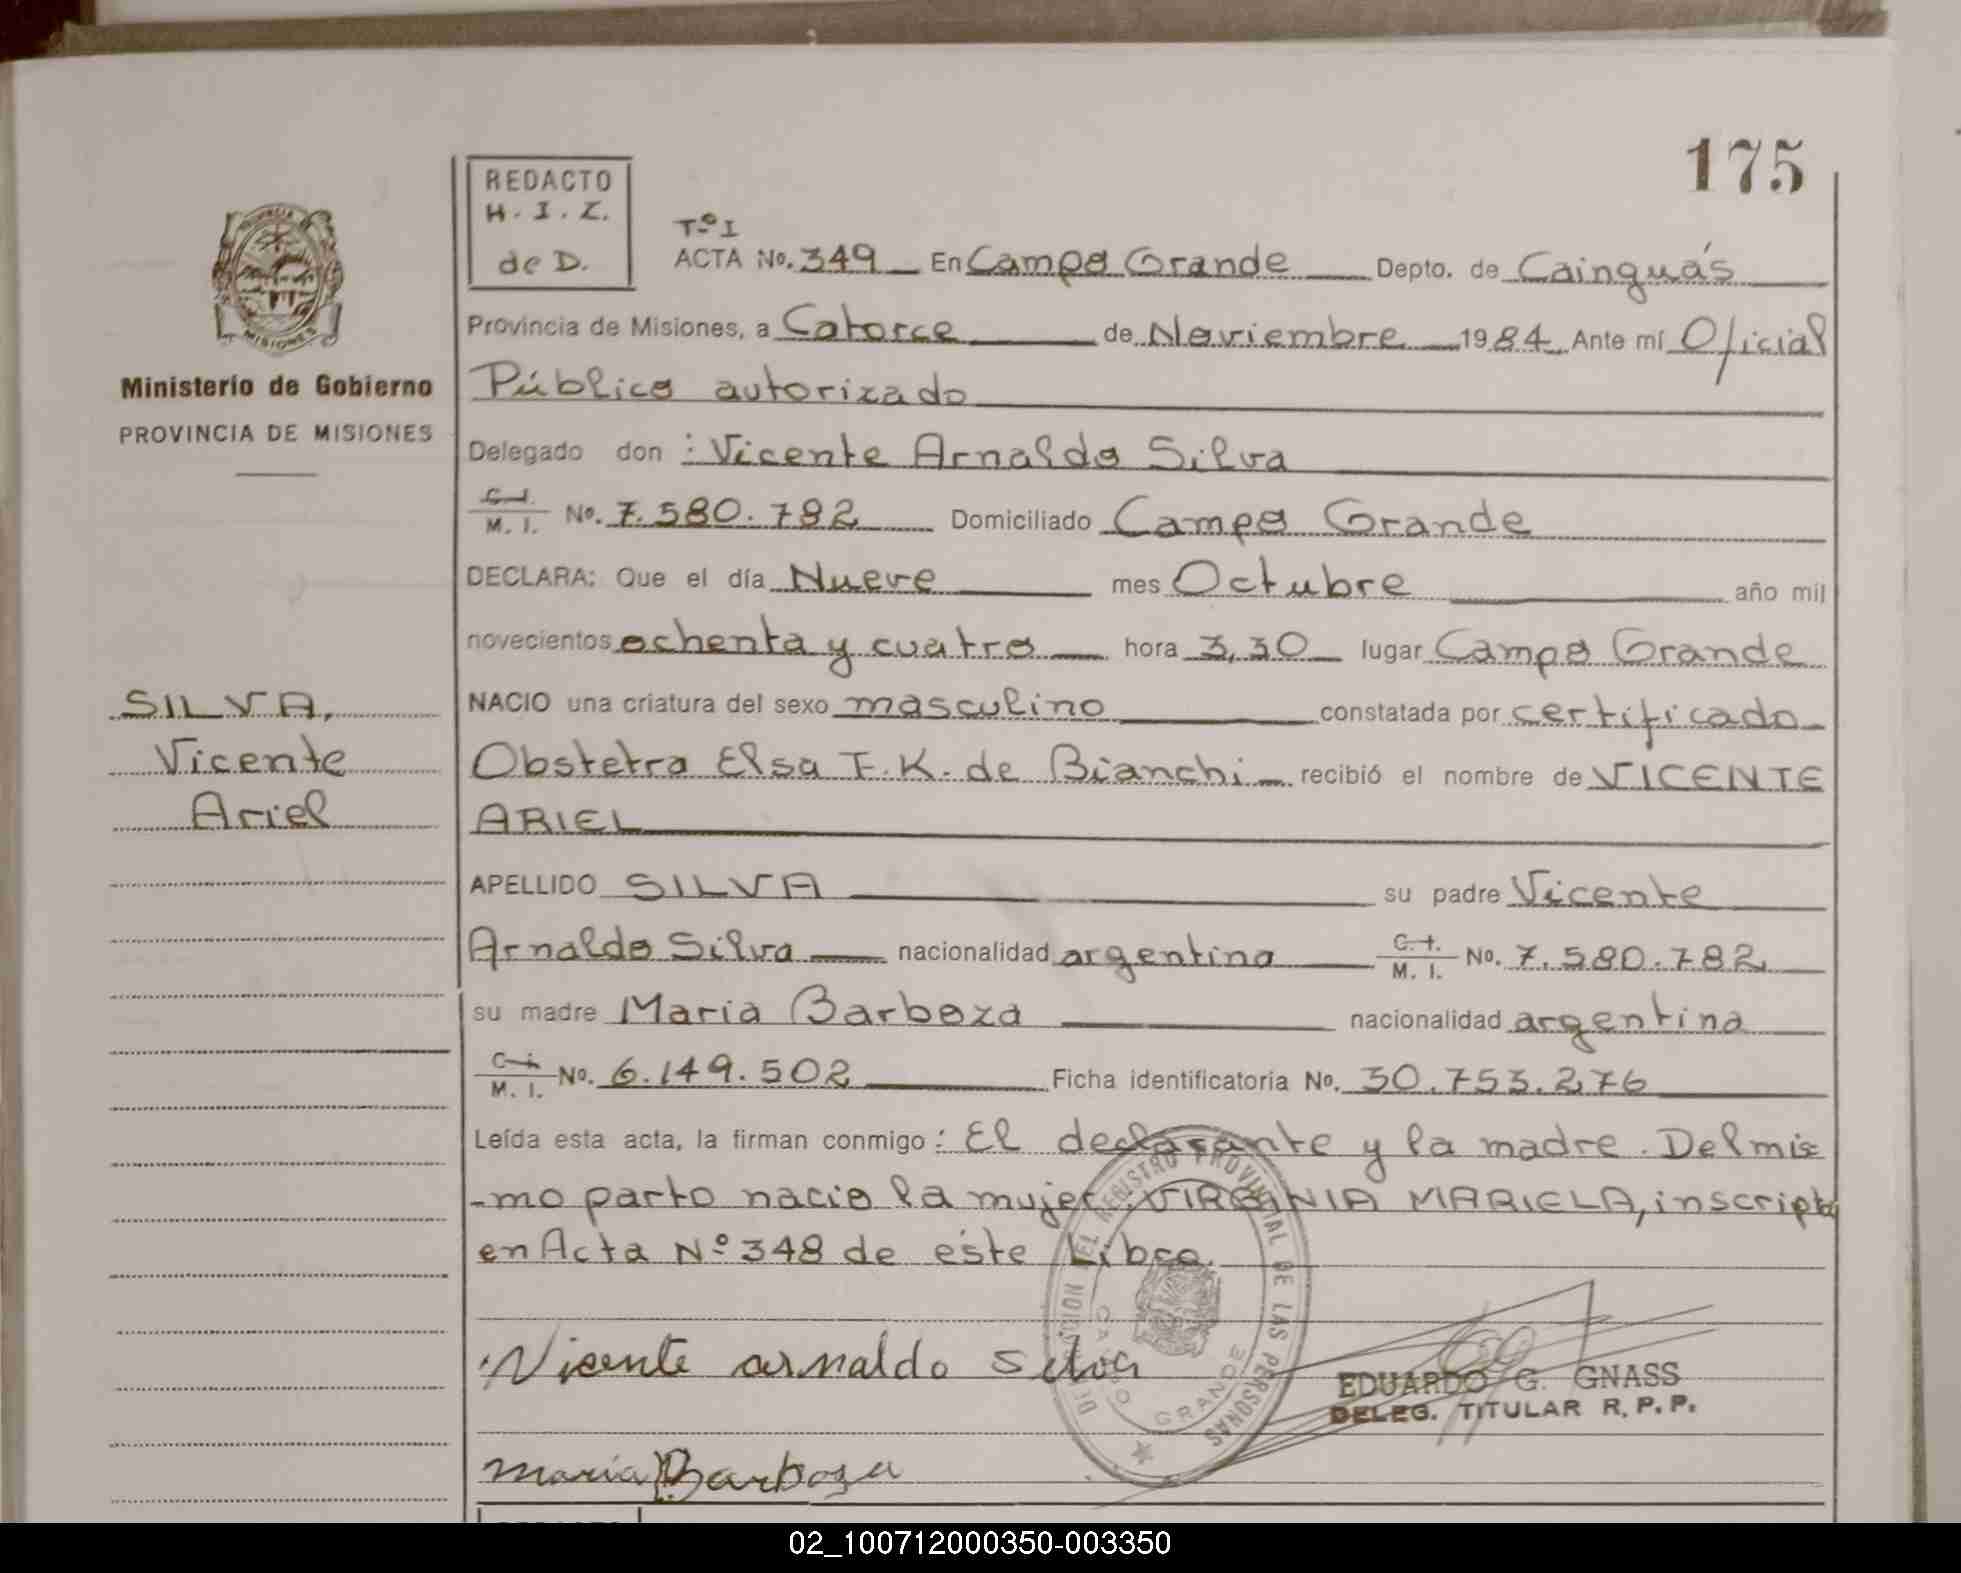 175
REDACTO
H. I. Z.
de D.
Tº I
ACTA No. 349 En Campo Grande Depto. de Cainguás
Provincia de Misiones, a Catorce de Noviembre 1984 Ante mí Oficial
Ministerio de Gobierno
PROVINCIA DE MISIONES
Público autorizado
Delegado don : Vicente Arnaldo Silva
C. I.
M. I. No. 7.580.782 Domiciliado Campo Grande
DECLARA: Que el día Nueve mes Octubre año mil
novecientos ochenta y cuatro hora 3,30 lugar Campo Grande
SILVA,
Vicente
Ariel
NACIO una criatura del sexo masculino constatada por certificado
Obstetra Elsa F. K. de Bianchi recibió el nombre de VICENTE
ARIEL
APELLIDO SILVA su padre Vicente
Arnaldo Silva nacionalidad argentina C. I. M. I. No. 7.580.782
su madre Maria Barboza nacionalidad argentina
C. I.
M. I. No. 6.149.502 Ficha identificatoria No. 30.753.276
Leída esta acta, la firman conmigo : El declarante y la madre. Del mis
-mo parto nacio la mujer: VIRGINIA MARIELA, inscripta
en Acta Nº 348 de éste Libro.
Vicente arnaldo Silva
DEL REGISTRO PROVINCIAL DE LAS PERSONAS
CAMPO GRANDE
EDUARDO G. GNASS
DELEG. TITULAR R. P. P.
maria Barboza
02_100712000350-003350